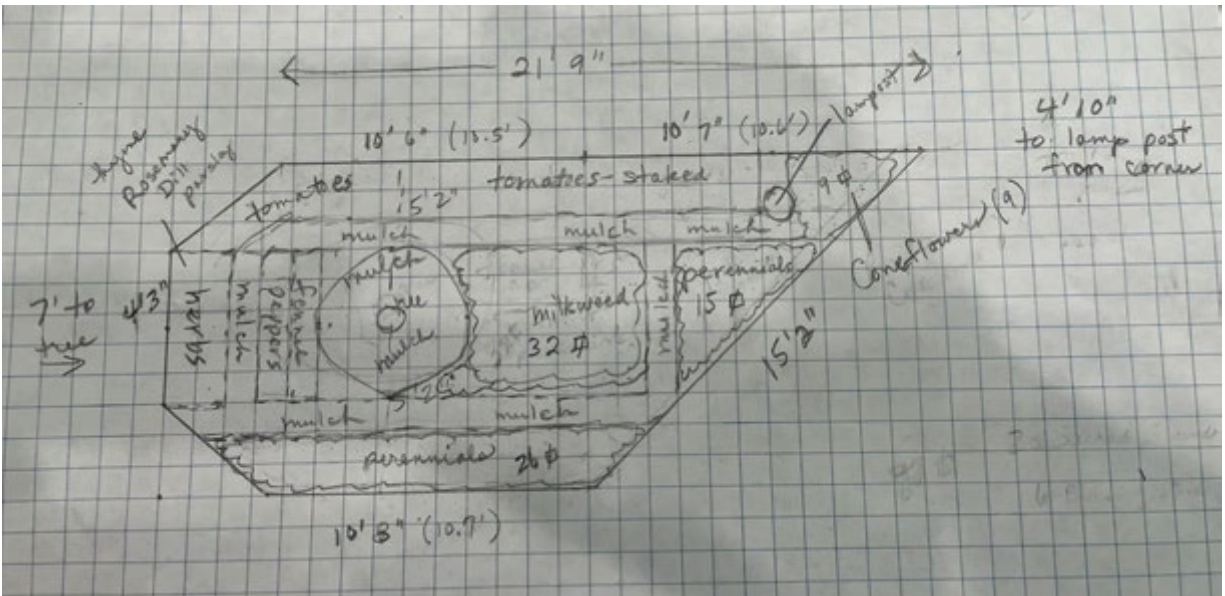 21' 9"
10' 6" (10.5')
10' 7" (10.6')
lampost
4' 10"
to lamp post
from corner
thyme
Rosemary
Dill
parsley
tomatoes
5'2"
tomatoes - staked
9 ⌀
Coneflowers (9)
mulch
mulch
mulch
7' to
tree
4'3"
herbs
mulch
peppers
mulch
tree
mulch
milkweed
32 ⌀
mulch
perennials
15 ⌀
15'2"
mulch
mulch
perennials 26 ⌀
10' 8" (10.7')